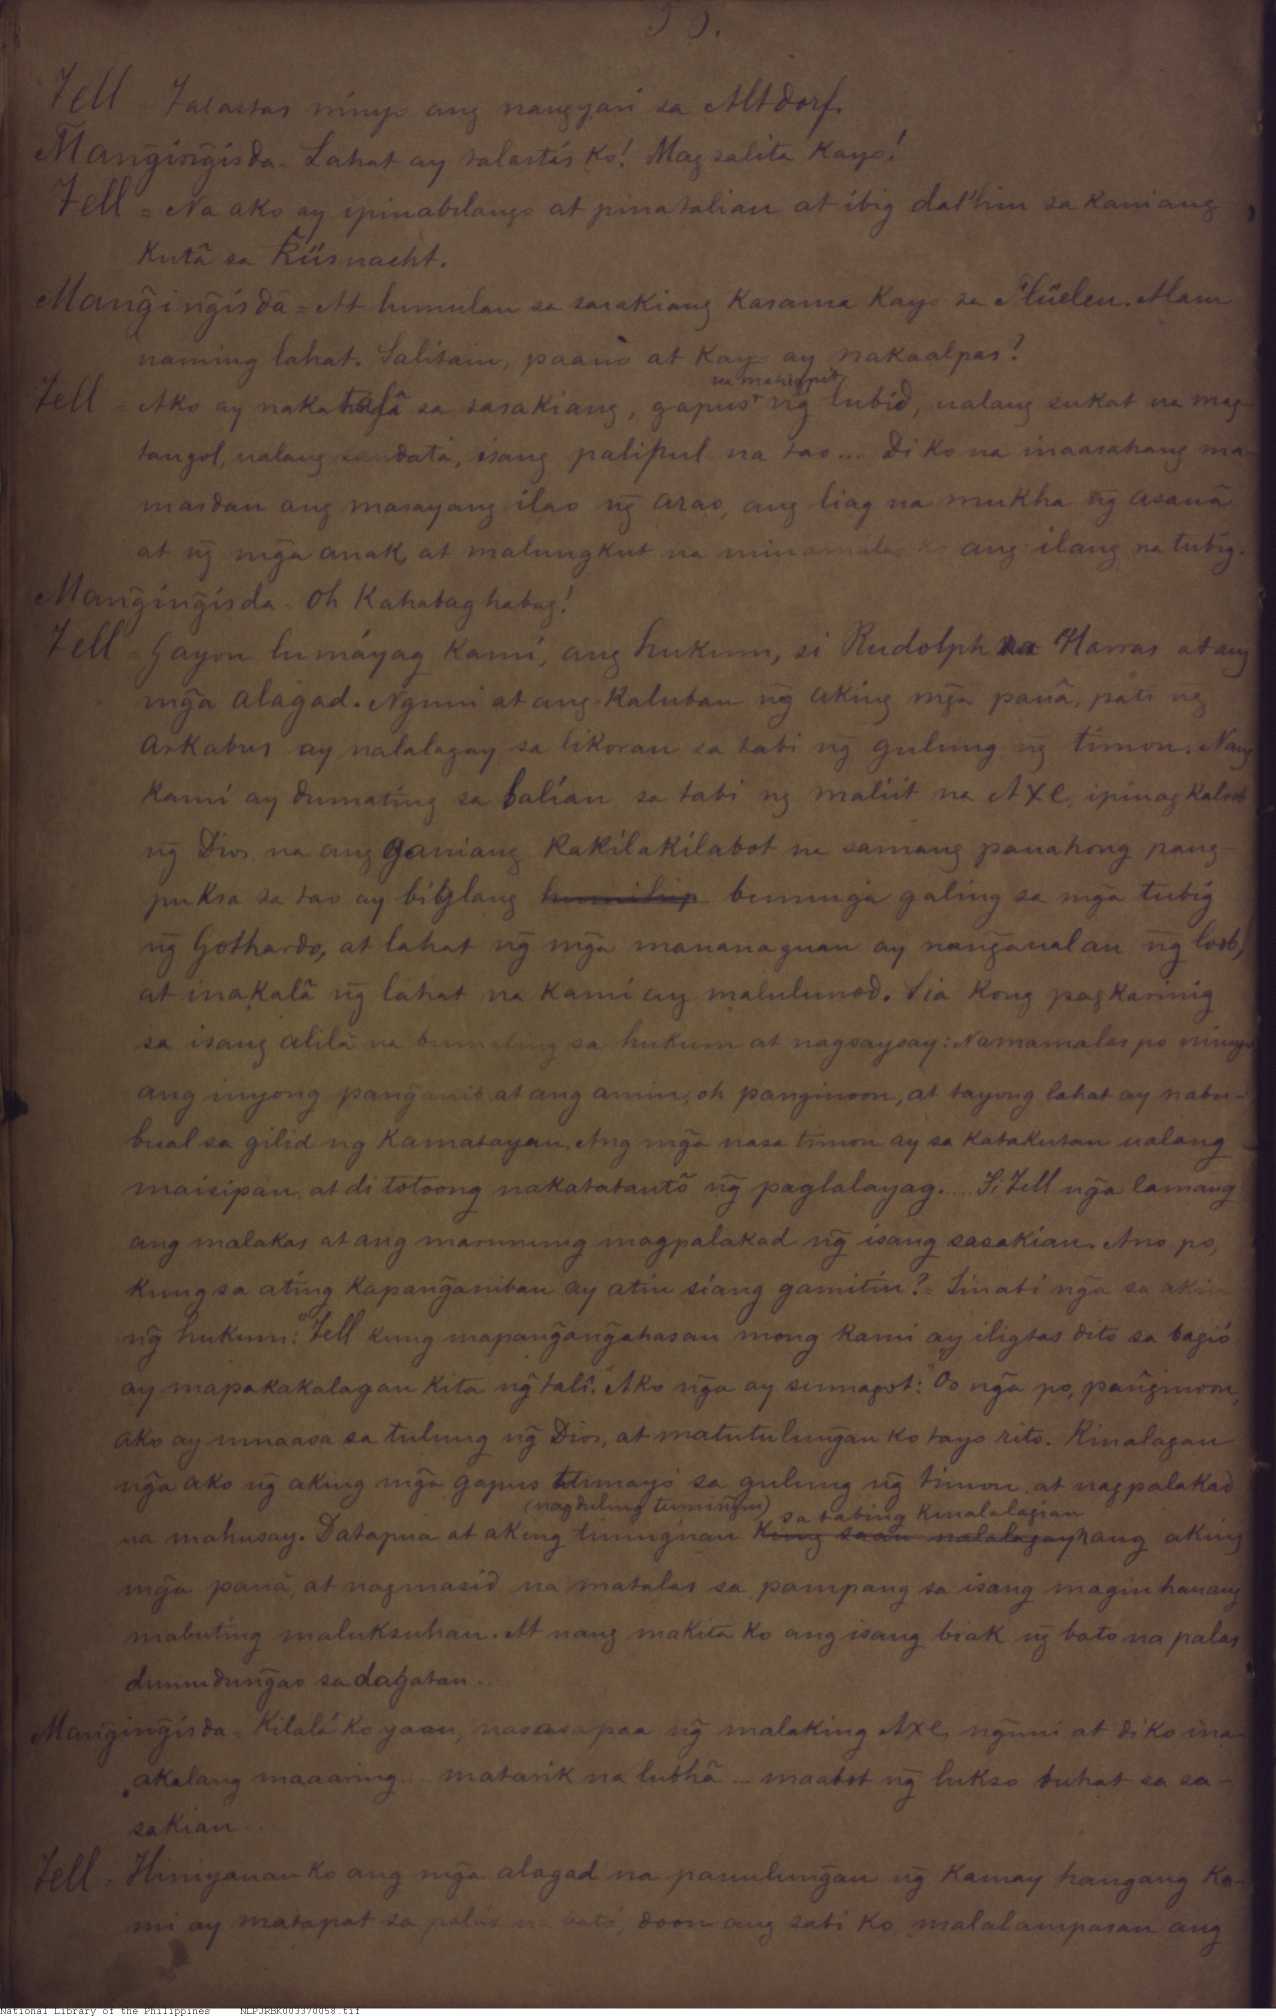 53.
Tell - Talastas ninyo ang nangyari sa Altdorf.
Mang̃ing̃isda - Lahat ay talastás ko! Magsalita kayo!
Tell = Na ako ay ipinabilango at pinatalian at ibig dat'hin sa kaniang
kutâ sa Küsnacht.
Mang̃ing̃isda = At lumulan sa sasakiang kasama kayo sa Flüelen. Alam
naming lahat. Salitain, paano at kayo ay nakaalpas?
na mahigpit
Tell = Ako ay naka sa sasakiang, gapus ng̃ lubid, ualang sukat na mag-
tangol, ualang sandata, isang palipul na tao... Di ko na inaasahang ma-
masdan ang masayang ilao ng̃ arao, ang liag na mukha ng̃ asauâ
at ng̃ mg̃a anak, at malungkut na minamalas ko ang ilang na tubig.
Mang̃ing̃isda - Oh kahabaghabag!
Tell = Gayon lumáyag kamí, ang hukum, si Rudolph na Harras at ang
mg̃a alagad. Nguni at ang kaluban ng̃ aking mg̃a panâ, pati ng̃
arkabus ay nalalagay sa likoran sa tabi ng̃ gulung ng̃ timon. Nang
kamí ay dumating sa balían sa tabi ng maliit na Axe, ipinagkaloob
ng̃ Dios na ang ganiang kakilakilabot na samang panahong pang-
puksa sa tao ay biglang humihip bumuga galing sa mg̃a tubig
ng̃ Gothardo, at lahat ng̃ mg̃a mananaguan ay nang̃aualan ng̃ loob,
at inakalâ ng̃ lahat na kamí ay malulunod. Sia kong pagkarinig
sa isang alilà na bumaling sa hukum at nagsaysay: Namamalas po ninyo
ang inyong pang̃anib at ang amin, oh panginoon, at tayong lahat ay nabu-
bual sa gilid ng kamatayan. Ang mg̃a nasa timon ay sa katakutan ualang
maisipan, at di totoong nakatatantô ng̃ paglalayag.... Si Tell ng̃a lamang
ang malakas at ang marunung magpalakad ng̃ isang sasakian. Ano po,
kung sa ating kapang̃aniban ay atin siang gamitin? = Sinabi ng̃a sa akin
ng̃ hukum: "Tell kung mapang̃ang̃ahasan mong kami ay iligtas dito sa bagió
ay mapakakalagan kita ng̃ talì." Ako ng̃a ay sumagot: "Oo ng̃a po, pang̃inoon,
ako ay umaasa sa tulung ng̃ Dios, at matutulung̃an ko tayo rito. Kinalagan
ng̃a ako ng̃ aking mg̃a gapus tumayó sa gulung ng̃ timon at nagpalakad
(nagduling tuming̃in) sa tabing kinalalagian
na mahusay. Datapua at aking tinignan kung saan nalalagay ang aking
mg̃a panâ, at nagmasid na matalas sa pampang sa isang maginhauang
mabuting maluksuhan. At nang makita ko ang isang biak ng̃ bato na palas
dumudung̃ao sa dagatan...
Mang̃ing̃isda = Kilalá ko yaan, nasasapaa ng̃ malaking Axe, ng̃uni at di ko ina-
akalang maaaring... matarik na lubhâ... maabot ng̃ lukso buhat sa sa-
sakian...
Tell - Hiniyauan ko ang mg̃a alagad na panulung̃an ng̃ kamay hangang ka-
mi ay matapat sa palas na bató, doon ang sabi ko, malalampasan ang
National Library of the Philippines NLPJRBK003370058.tif